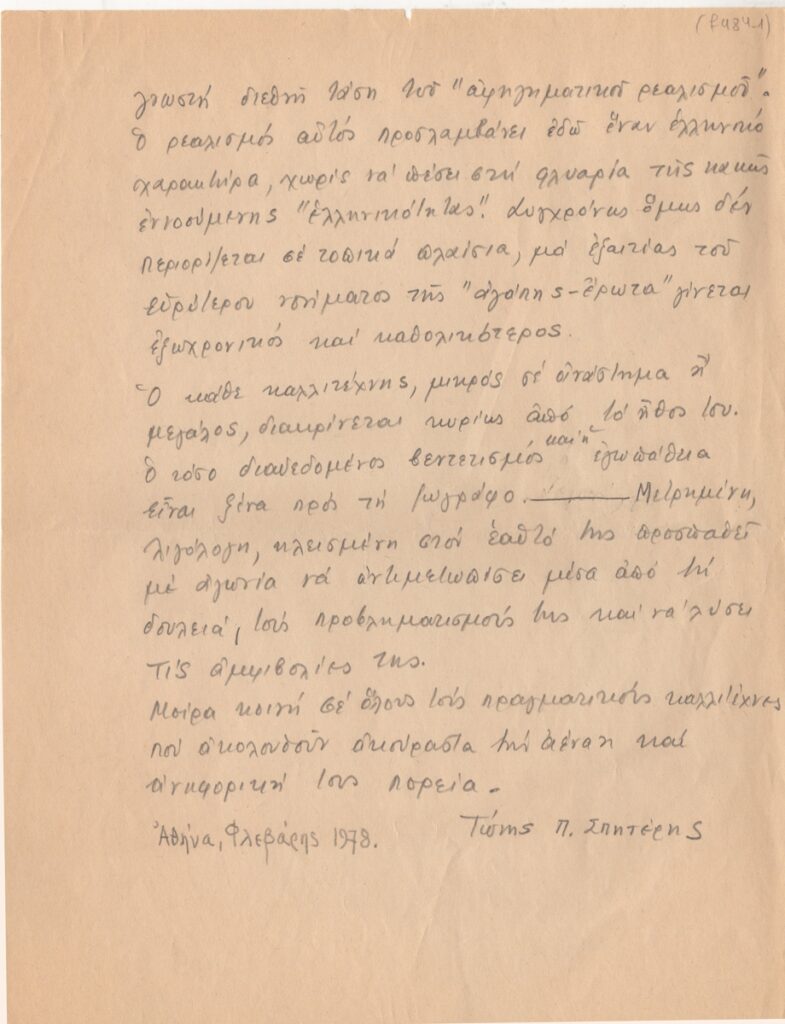 (f4841)
γνωστή διεθνή τάση τοῦ "ἀφηγηματικοῦ ρεαλισμοῦ".
Ὁ ρεαλισμός αὐτός προσλαμβάνει ἐδῶ ἕναν ἑλληνικό
χαρακτήρα, χωρίς νά πέσει στή φλυαρία τῆς κακῶς
ἐννοούμενης "ἑλληνικότητας". Συγχρόνως ὅμως δέν
περιορίζεται σέ τοπικά πλαίσια, μά ἐξαιτίας τοῦ
εὐρύτερου νοήματος τῆς "ἀγάπης-ἔρωτα" γίνεται
ἐξωχρονικός καί καθολικώτερος.
Ὁ κάθε καλλιτέχνης, μικρός σέ ἀνάστημα ἤ
μεγάλος, διακρίνεται κυρίως ἀπό τό ἦθος του.
Ὁ τόσο διαδεδομένος βεντετισμός καί ἡ ἐγωπάθεια
εἶναι ξένα πρός τή ζωγράφο. Μετρημένη,
λιγόλογη, κλεισμένη στόν ἑαυτό της προσπαθεῖ
μέ ἀγωνία νά ἀντιμετωπίσει μέσα ἀπό τή
δουλειά, τούς προβληματισμούς της καί νά λύσει
τίς ἀμφιβολίες της.
Μοίρα κοινή σέ ὅλους τούς πραγματικούς καλλιτέχνες
πού ἀκολουθοῦν ἀκούραστα τήν ἀέναη καί
ἀνηφορική τους πορεία.
Ἀθήνα, Φλεβάρης 1978. Τώνης Π. Σπητέρης